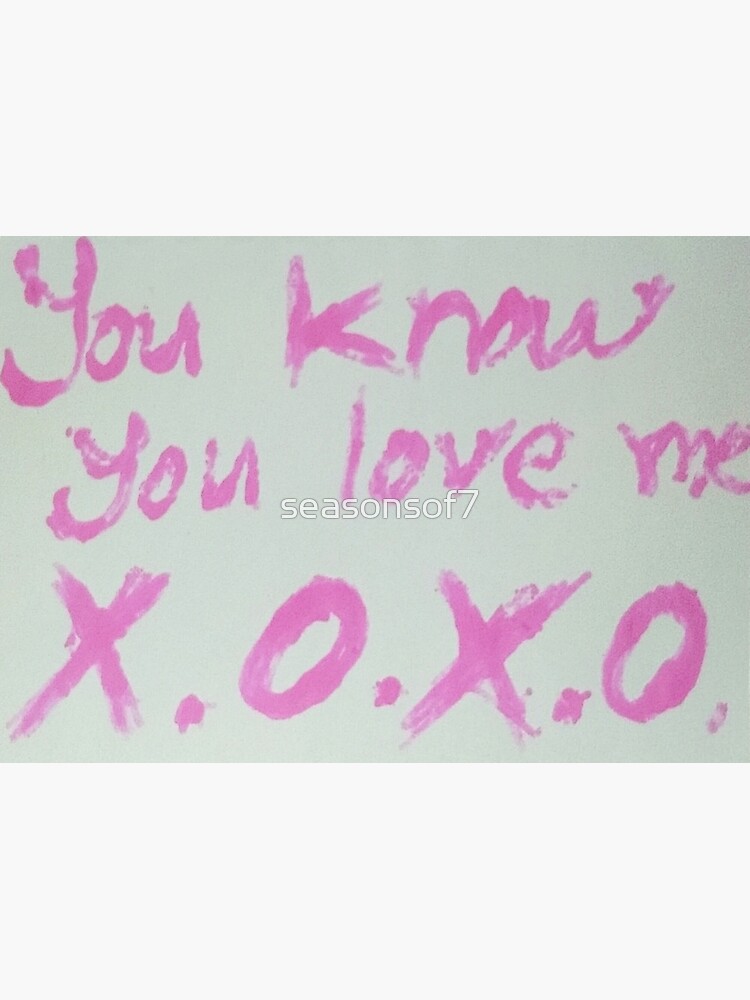 You know
you love me
seasonsof7
X.O.X.O.